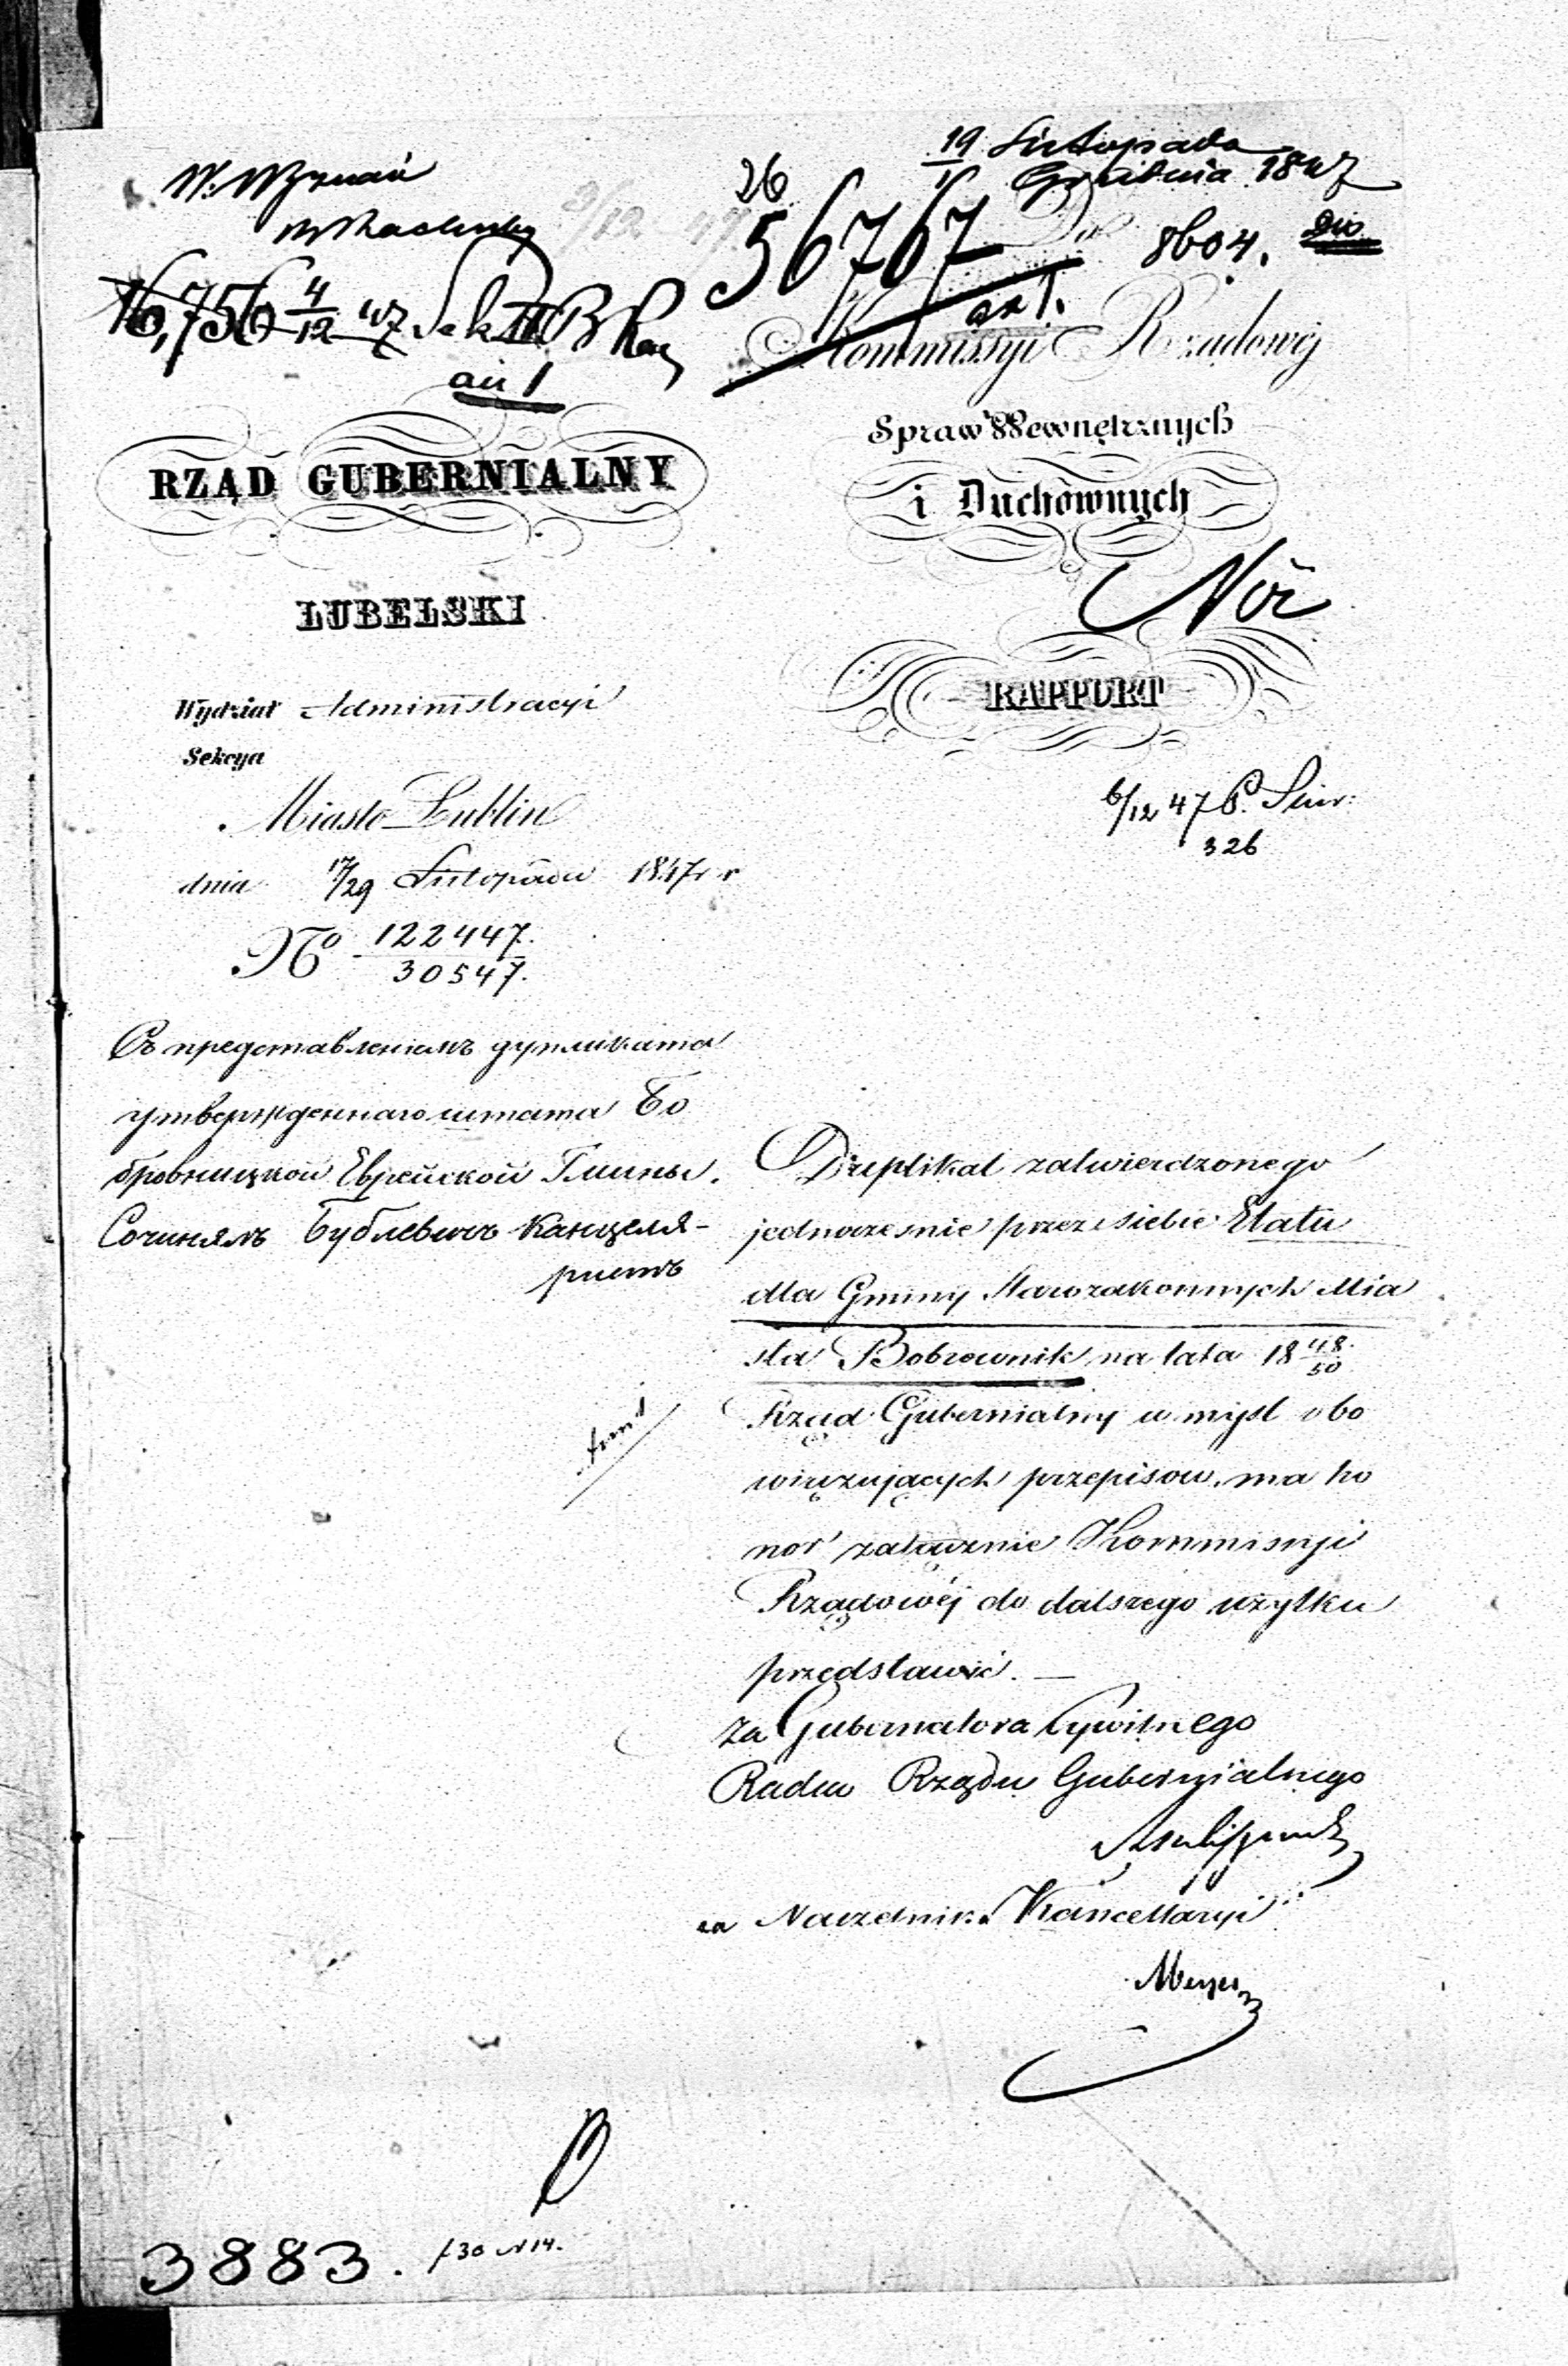 26
19 Listopada
1 Grudnia 1847
56767
8604.
16,756 4/12 47 Sek III B
an 1
Do
ax 1.
Kommissyi Rządowéj
Spraw Wewnętrznych
i Duchownych
RZĄD GUBERNIALNY
LUBELSKI
RAPPORT
6/12 47
326
Wydział Administracyi
Sekcya
Miasto Lublin
dnia 17/29 Listopada 1847 r
No 122447.
30547.
Съ представленіемъ дупликата
утвержденнаго штата Бо
бровницкой Еврейской Гмины.
Сочинялъ Бублевичъ Канцеля-
ристъ
Duplikat zatwierdzonego
jednocześnie przez siebie Etatu
dla Gminy Starozakonnych Mia
sta Bobrownik na lata 18 48/50
Rząd Gubernialny w myśl obo
wiązujących przepisów, ma ho
nor załącznie Kommissyi
Rządowéj do dalszego użytku
przedstawić. —
za Gubernatora Cywilnego
Radca Rządu Gubernialnego
za Naczelnika Kancellaryi
Meyer
3883.
f 30 N 14.